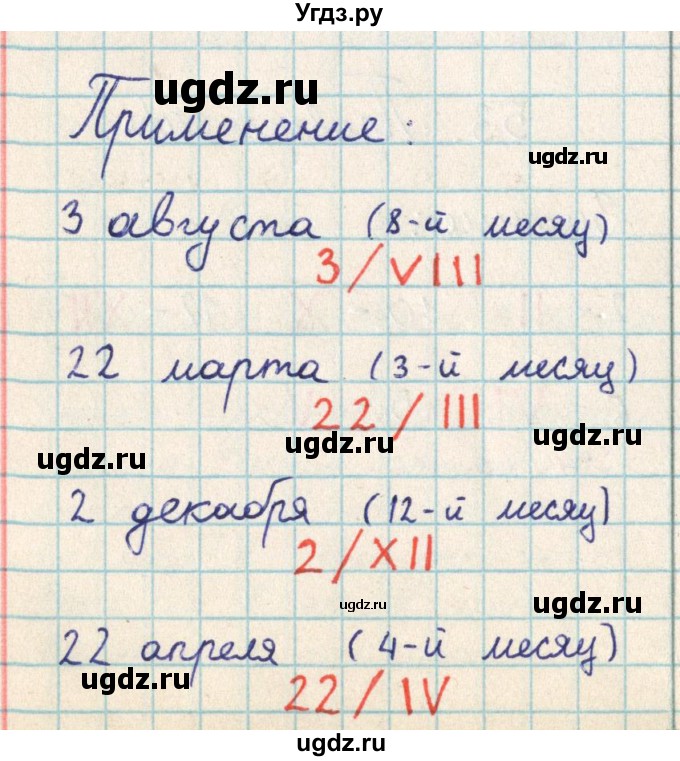 Угдз.ру
ugdz.ru
Применение:
ugdz.ru
3 августа (8-й месяц)
3/VIII
22 марта (3-й месяц)
22/III
ugdz.ru
ugdz.ru
ugdz.ru
2 декабря (12-й месяц)
2/XII
ugdz.ru
ugdz.ru
22 апреля (4-й месяц)
ugdz.ru
22/IV
ugdz.ru